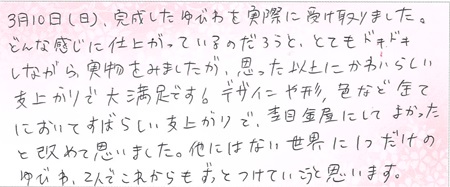 3月10日(日)、完成したゆびわを実際に受け取りました。
どんな感じに仕上がっているのだろうと、とてもドキドキ
しながら実物をみましたが、思った以上にかわいらしい
支上がりで大満足です。デザインや形、色など全て
においてすばらしい支上がりで、杢目金屋にしてよかった
と改めて思いました。他にはない世界に1つだけの
ゆびわ、2人でこれからもずっとつけていこうと思います。